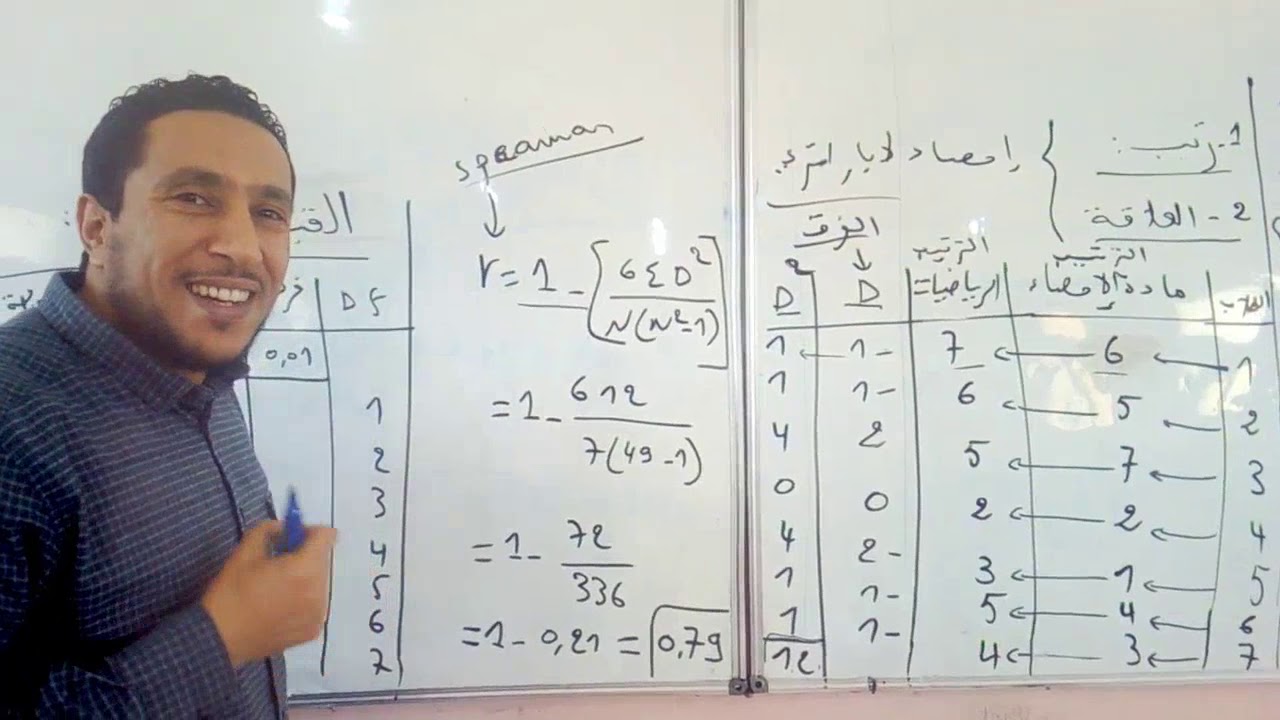 1- رتب:
2- العلاقة
إحصاء لابارامتري
الفرق
الطلاب | مادة الإحصاء الترتيب | الرياضيات الترتيب = | D | D²
1 | 6 | 7 | 1- | 1
2 | 5 | 6 | 1- | 1
3 | 7 | 5 | 2 | 4
4 | 2 | 2 | 0 | 0
5 | 1 | 3 | 2- | 4
6 | 4 | 5 | 1- | 1
7 | 3 | 4 | 1- | 1
12
speaman
r = 1 - [6ΣD² / N(N²-1)]
= 1 - 6 12 / 7(49-1)
= 1 - 72 / 336
= 1 - 0,21 = 0,79
DF
0,01
1
2
3
4
5
6
7